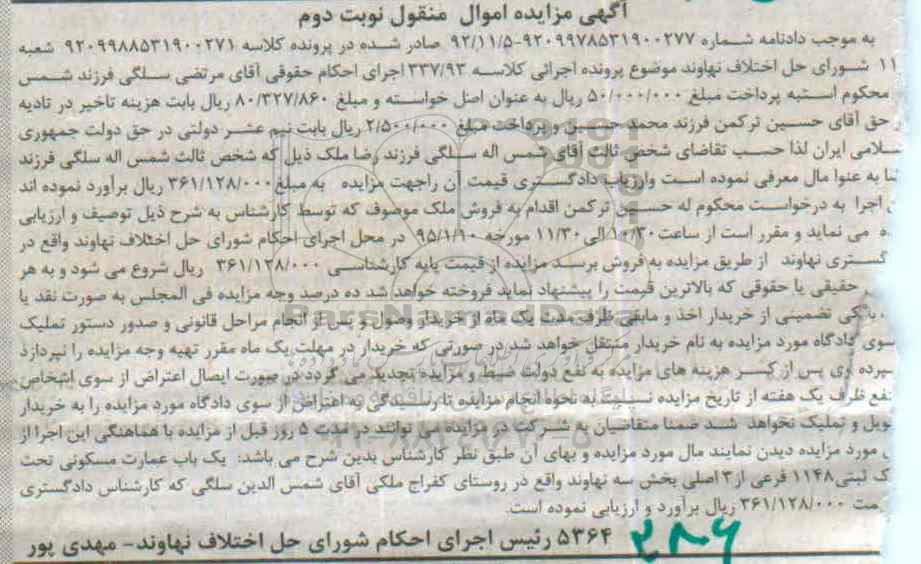 آگهی مزایده اموال منقول نوبت دوم
به موجب دادنامه شماره ۹۲۰۹۹۷۸۵۳۱۹۰۰۲۷۷-۹۲/۱۱/۵ صادر شده در پرونده کلاسه ۹۲۰۹۹۸۸۵۳۱۹۰۰۲۷۱ شعبه
۱۱ شورای حل اختلاف نهاوند موضوع پرونده اجرائی کلاسه ۳۳۷/۹۳ اجرای احکام حقوقی آقای مرتضی سلگی فرزند شمس
محکوم استبه پرداخت مبلغ ۵۰/۰۰۰/۰۰۰ ریال به عنوان اصل خواسته و مبلغ ۸۰/۳۲۷/۸۶۰ ریال بابت هزینه تاخیر در تادیه
حق آقای حسین ترکمن فرزند محمد حسین و پرداخت مبلغ ۲/۵۰۰/۰۰۰ ریال بابت نیم عشر دولتی در حق دولت جمهوری
سلامی ایران لذا حسب تقاضای شخص ثالث آقای شمس اله سلگی فرزند رضا ملک ذیل که شخص ثالث شمس اله سلگی فرزند
به عنوا مال معرفی نموده است وارزیاب دادگستری قیمت آن راجهت مزایده به مبلغ ۳۶۱/۱۲۸/۰۰۰ ریال برآورد نموده اند
اجرا به درخواست محکوم له حسین ترکمن اقدام به فروش ملک موصوف که توسط کارشناس به شرح ذیل توصیف و ارزیابی
می نماید و مقرر است از ساعت ۱۰/۳۰ الی ۱۱/۳۰ مورخه ۹۵/۱/۱۰ در محل اجرای احکام شورای حل اختلاف نهاوند واقع در
گستری نهاوند از طریق مزایده به فروش برسد مزایده از قیمت پایه کارشناسی ۳۶۱/۱۲۸/۰۰۰ ریال شروع می شود و به هر
حقیقی یا حقوقی که بالاترین قیمت را پیشنهاد نماید فروخته خواهد شد ده درصد وجه مزایده فی المجلس به صورت نقد یا
کی تضمینی از خریدار اخذ و مابقی ظرف مدت یک ماه از خریدار وصول و پس از انجام مراحل قانونی و صدور دستور تملیک
سوی دادگاه مورد مزایده به نام خریدار منتقل خواهد شد در صورتی که خریدار در مهلت یک ماه مقرر تهیه وجه مزایده را نپردازد
سپرده وی پس از کسر هزینه های مزایده به نفع دولت ضبط و مزایده تجدید می گردد در صورت ایصال اعتراض از سوی اشخاص
نفع ظرف یک هفته از تاریخ مزایده نسبت به نحوه انجام مزایده تا رسیدگی به اعتراض از سوی دادگاه مورد مزایده را به خریدار
ویل و تملیک نخواهد شد ضمنا متقاضیان به شرکت در مزایده می توانند در مدت ۵ روز قبل از مزایده با هماهنگی این اجرا از
مورد مزایده دیدن نمایند مال مورد مزایده و بهای آن طبق نظر کارشناس بدین شرح می باشد: یک باب عمارت مسکونی تحت
ک ثبتی ۱۱۴۸ فرعی از ۳ اصلی بخش سه نهاوند واقع در روستای کفراج ملکی آقای شمس الدین سلگی که کارشناس دادگستری
مت ۳۶۱/۱۲۸/۰۰۰ ریال برآورد و ارزیابی نموده است.
۵۳۶۴ رئیس اجرای احکام شورای حل اختلاف نهاوند- مهدی پور
۲۸۶
ParsNamadData